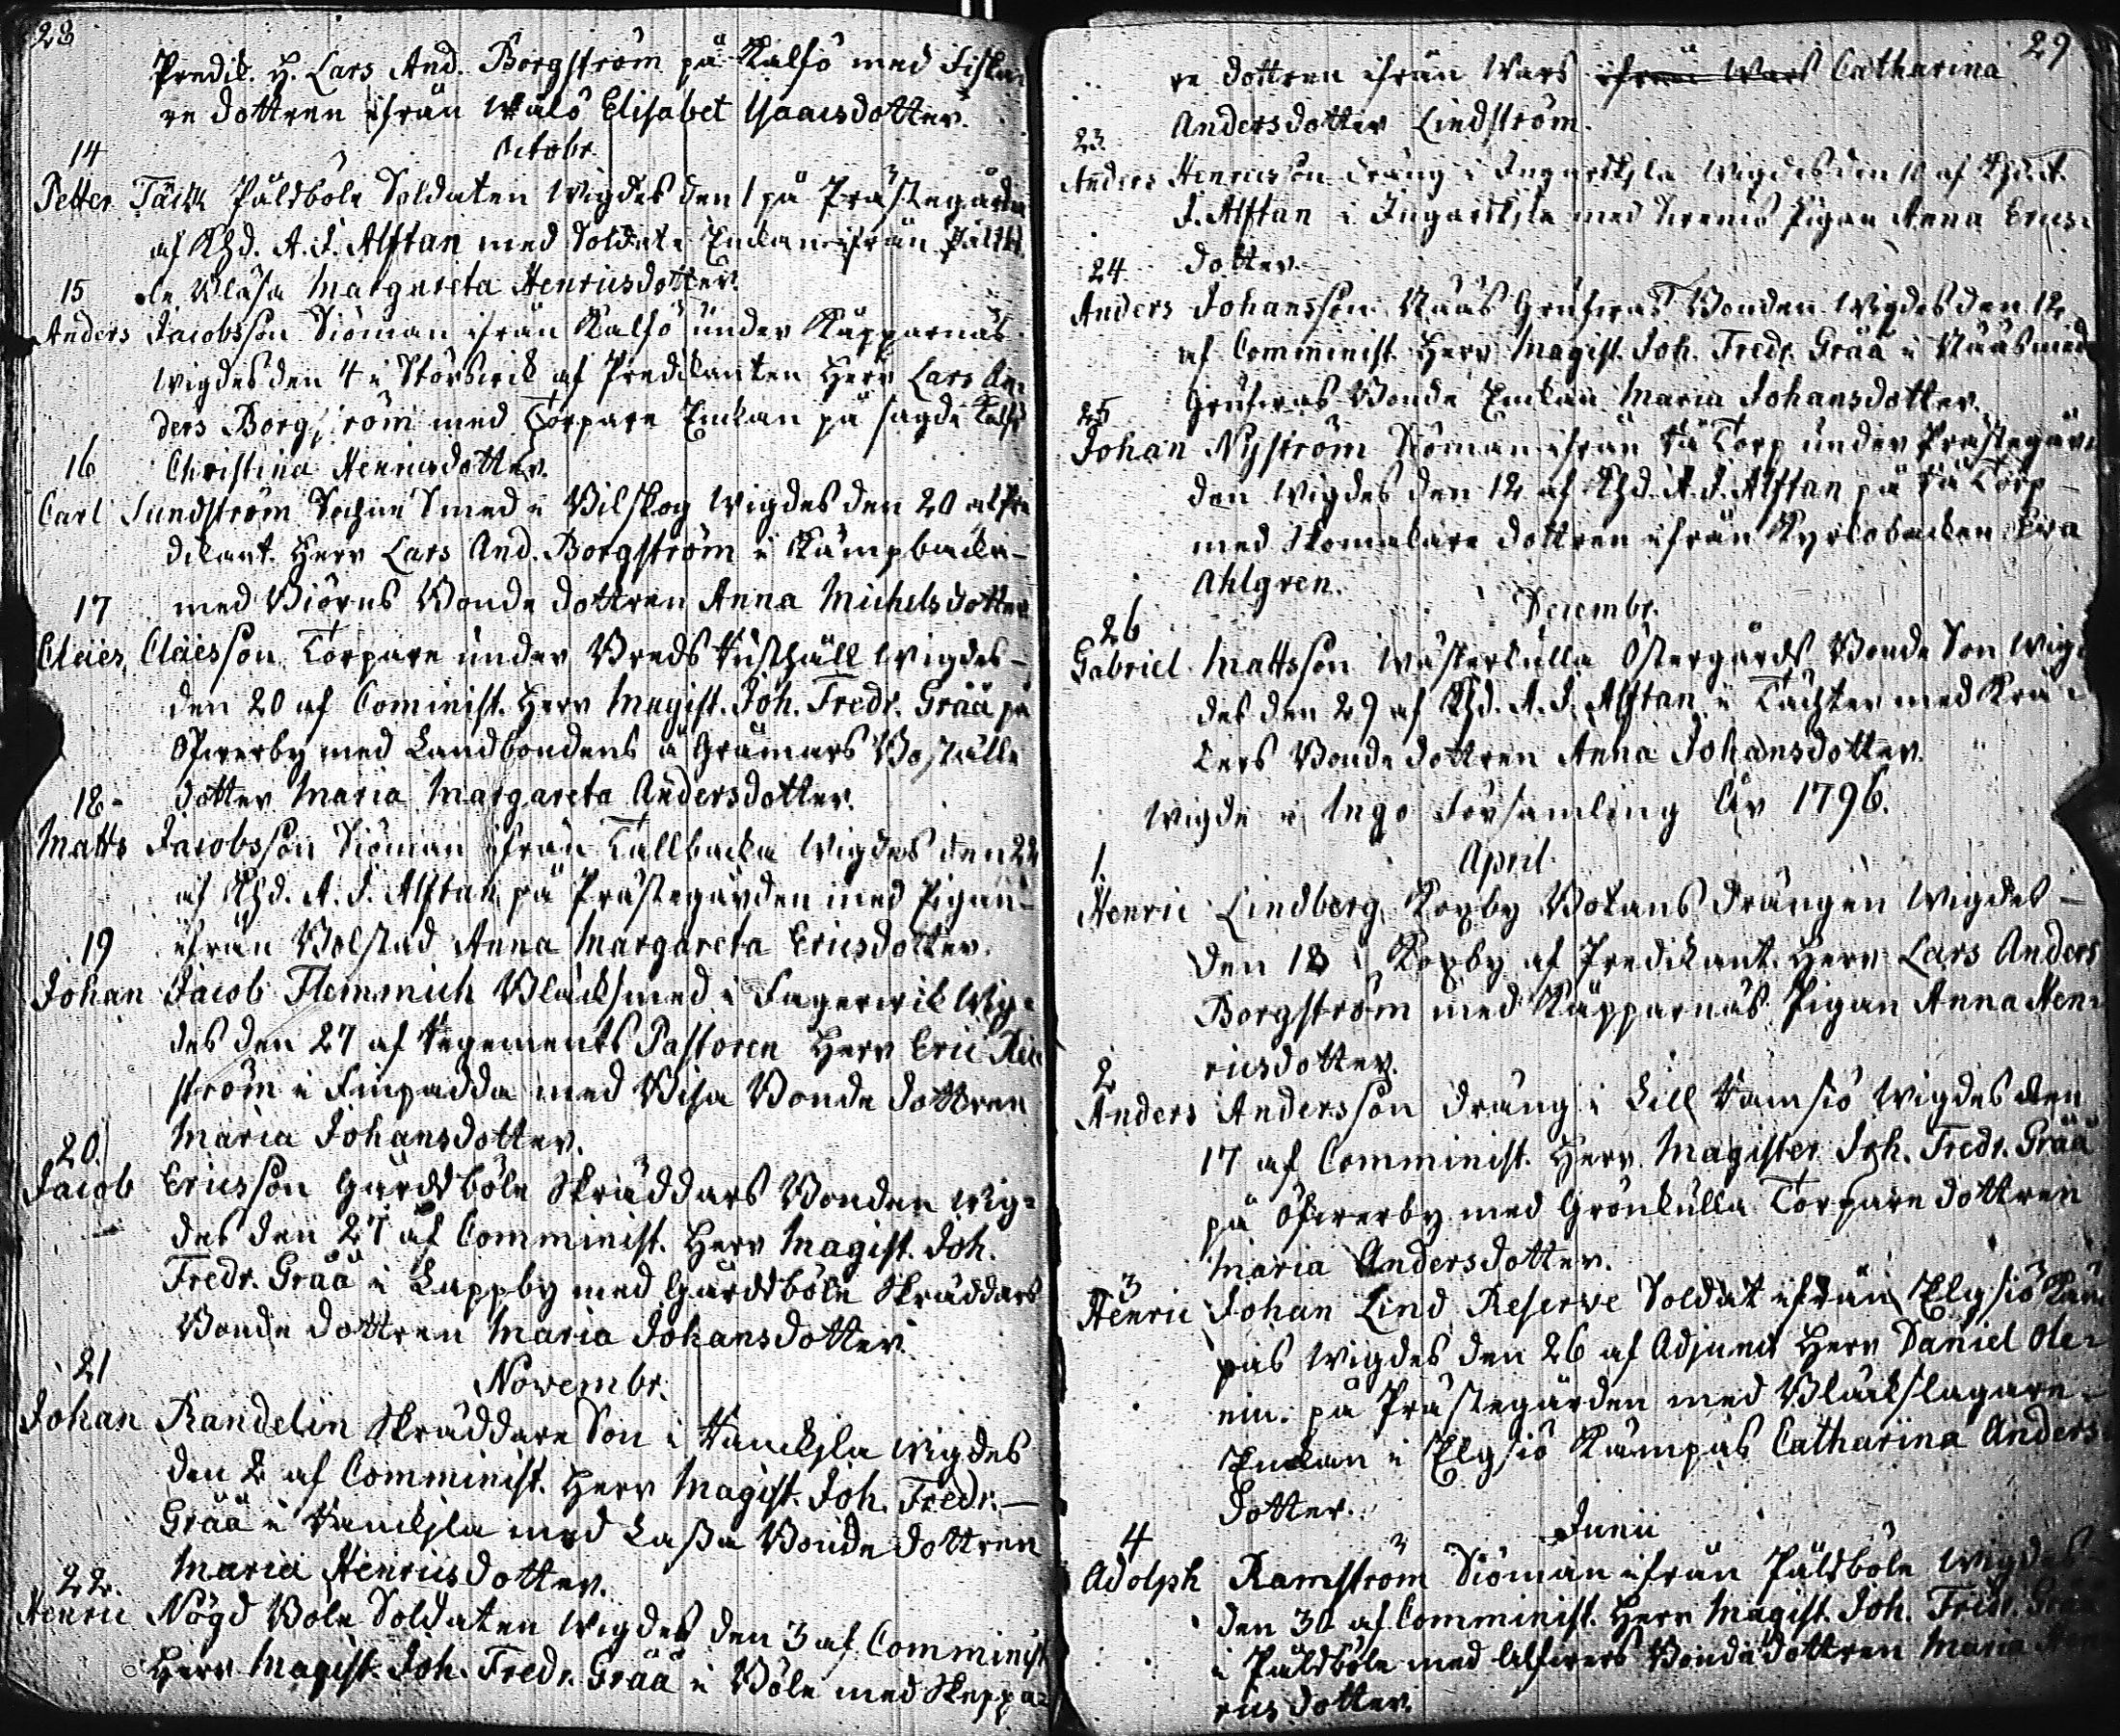 28
Predik. H. Lars And. Borgström på Kalfö med Fiska-
re dottren ifrån Walö Elisabet Isaacsdotter.
Octobr.
14
Petter Täck Påldböle Soldaten wigdes den 1 på Prästegården
af Khd. A. J. Alftan med Soldat Enkan ifrån
15
Margareta Henricsdotter.
Anders Jacobsson Siöman ifrån Kalfö under Käpparnäs
wigdes den 4 i Störswik af Predikanten Herr Lars An-
ders Borgström med Torpare Enkan på sagde Kalfö
16
Christina Henricsdotter.
Carl Sundström Sochne Smed i Bilskog wigdes den 20 af Pre
dikant. Herr Lars And. Borgström i Kämpbacka
17
med Biörns Bonde dottren Anna Michelsdotter
Claës Claësson Torpare under Breds Rusthåll wigdes
den 20 af Cominist. Herr Magist. Joh. Fredr. Gråå på
Öfwerby med Landbondens å Gråmars Boställe
18
dotter Maria Margareta Andersdotter.
Matts Jacobsson Siöman ifrån Tallbacka wigdes den 22
af Khd. A. J. Alftan på Prästegården med Pigan
19
ifrån Bolstad Anna Margareta Ericsdotter.
Johan Jacob Flemmich Bläcksmed i Fagerwik wig-
des den 27 af Regements Pastoren Herr Eric
ström i Finpadda med Bisa Bonde dottren
20.
Maria Johansdotter.
Jacob Ericsson Gårdsböle Skräddars Bonden wig-
des den 27 af Comminist. Herr Magist. Joh.
Fredr. Gråå i Lappby med Gårdsböle Skräddars
Bonde dottren Maria Johansdotter.
21
Novembr.
Johan Randelin Skräddare Son i Wanckjla wigdes
den 2 af Comminist. Herr Magist. Joh. Fredr.
Gråå i Wanckjla med Lassa Bonde dottren
22.
Maria Henricsdotter.
Henric Nögd Böle Soldaten wigdes den 3 af Comminist
Herr Magist. Joh. Fredr. Gråå i Böle med Skeppa-
29
re dottren ifrån Wars ifrån Wars Catharina
Andersdotter Lindström.
23.
Anders Henricsson dräng i Ingarskjla wigdes den 10 af Khd. A.
J. Alftan i Ingarskjla med Pigan Anna Erics-
dotter.
24
Anders Johansson Nääs Grufwas Bonden wigdes den 12
af Comminist. Herr Magist. Joh. Fredr. Gråå i Nääs med
Grufwas Bonde Enkan Maria Johansdotter.
25
Johan Nyström Siöman ifrån Rå Torp under Prästegår-
den wigdes den 12 af Khd. A. J. Alftan på Rå Torp
med Skomakare dottren ifrån Kyrkobacken
Ahlgren.
Decembr.
26
Gabriel Mattsson Wästerkulla Östergårds Bonde Son wig-
des den 29 af Khd. A. J. Alftan i Tächter med Krä-
kers Bonde dottren Anna Johansdotter.
Wigde i Ingo Församling År 1796.
April
1.
Henric Lindberg Koxby Botans Drängen wigdes
den 13 i Koxby af Predikant. Herr Lars Anders
Borgström med Käpparnäs Pigan Anna Hen-
ricsdotter.
2
Anders Andersson dräng i Lill Ramsiö wigdes den
17 af Comminist. Herr Magister Joh. Fredr. Gråå
på Öfwerby med Grönkulla Torpare dottren
Maria Andersdotter.
3
Henric Johan Lind Reserve Soldat ifrån Elgsiö Käm
pas wigdes den 26 af Adjunct Herr Daniel Ole-
nin. på Prästegården med Bläckslagare
Enkan i Elgsiö Kämpas Catharina Anders-
dotter.
Junii
4
Adolph Ramström Siöman ifrån Påldböle wigdes
den 30 af Comminist. Herr Magist. Joh. Fredr. Gråå
i Påldböle med Bonde dottren Maria Hen
ricsdotter.